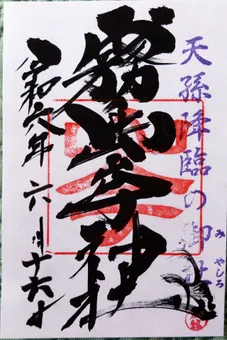 天孫降臨の御社
み やしろ
霧島岑神社
令和六年 六月十六日